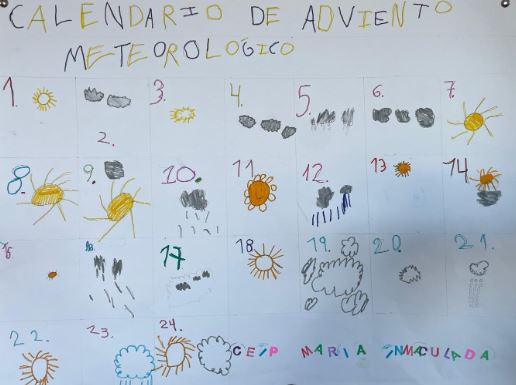 CALENDARIO DE ADVIENTO
METEOROLÓGICO
1. 2. 3. 4. 5. 6. 7.
8. 9. 10. 11 12. 13 14
17 18. 19. 20. 21.
22. 23. 24. CEIP MARIA INMACULADA